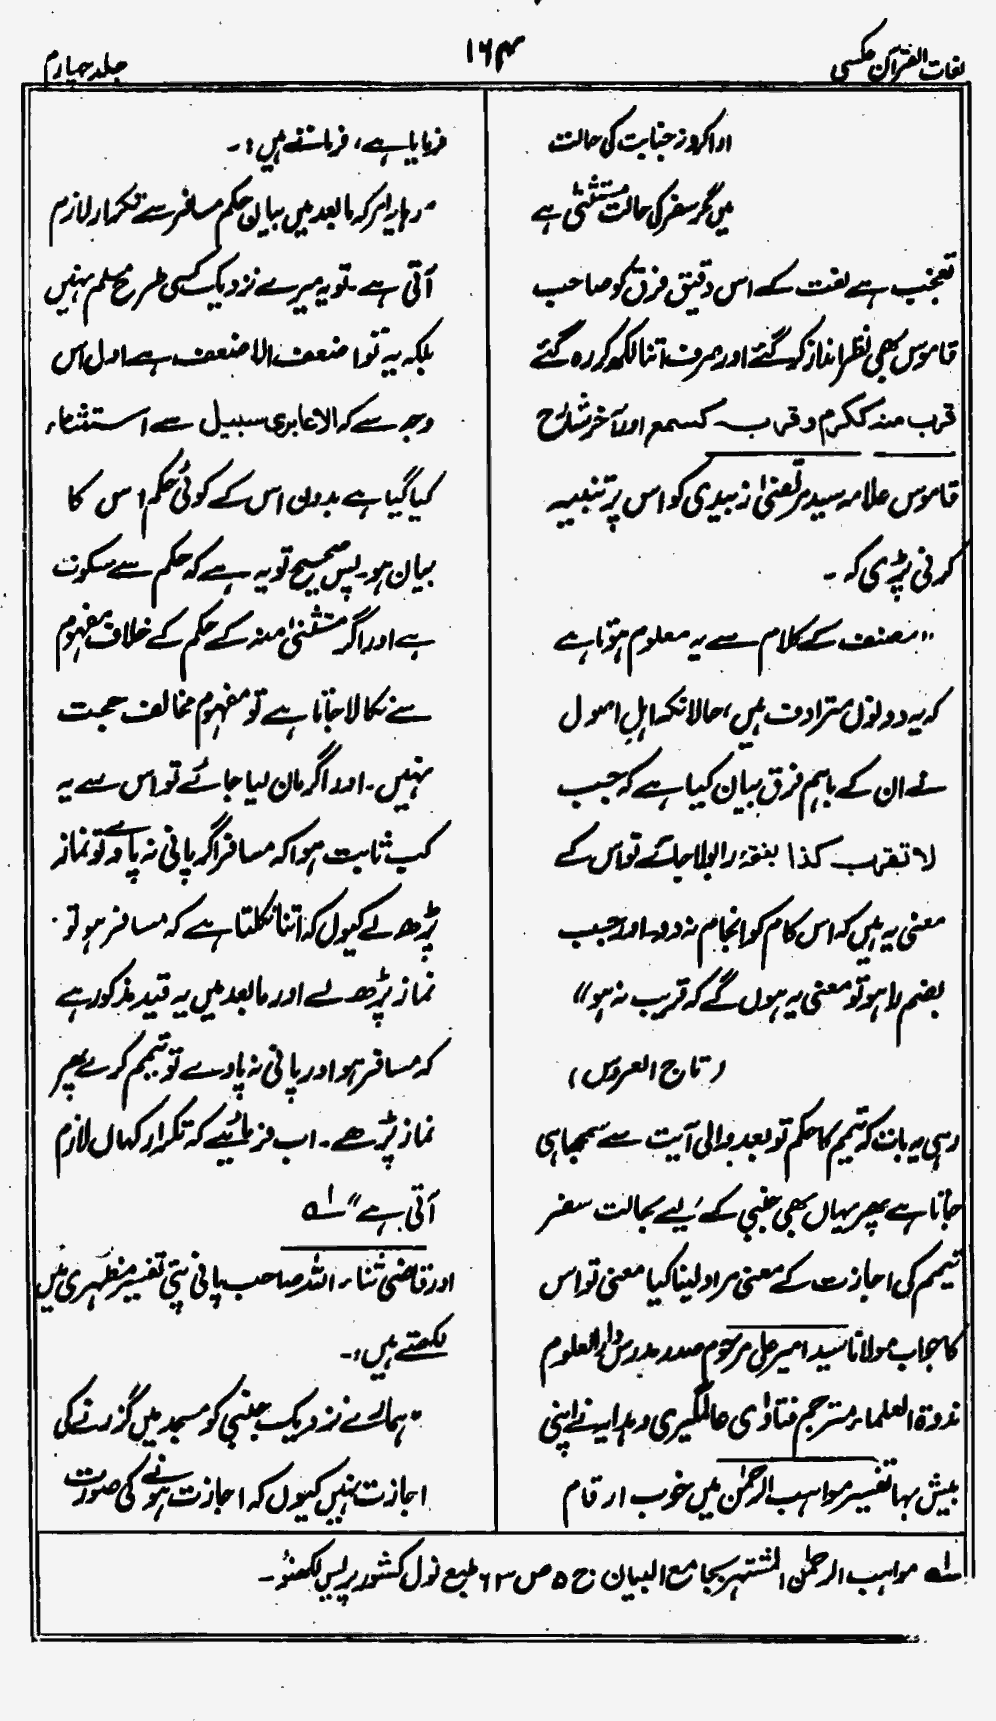 لغات القرآن عکسی
۱۶۴
جلد چہارم
ادا کرو نہ جنابت کی حالت
میں مگر سفر کی حالت مستثنیٰ ہے
تعجب ہے لغت کے اس دقیق فرق کو صاحب
قاموس بھی نظر انداز کر گئے اور صرف اتنا لکھ کر رہ گئے
قرب منہ ککرم و قرب کسمع اور آخر شارح
قاموس علامہ سید مرتضیٰ زبیدی کو اس پر تنبیہ
کرنی پڑی کہ ۔
"مصنف کے کلام سے یہ معلوم ہوتا ہے
کہ یہ دونوں مترادف ہیں، حالانکہ اہل اصول
نے ان کے باہم فرق بیان کیا ہے کہ جب
لا تقرب کذا بفتہ را بولا جائے تو اس کے
معنی یہ ہیں کہ اس کام کو انجام نہ دو۔ اور جب
بضم را ہو تو معنی یہ ہوں گے کہ قریب نہ ہو"
(تاج العروس)
رہی یہ بات کہ تیمم کا حکم تو بعد والی آیت سے سمجھا ہی
جاتا ہے پھر یہاں بھی جنبی کے لیے بحالت سفر
تیمم کی اجازت کے معنی مراد لینا کیا معنی تو اس
کا جواب مولانا سید امیر علی مرحوم صدر مدرس دار العلوم
ندوۃ العلماء مترجم فتاوٰی عالمگیری و ہدایہ نے اپنی
بیش بہا تفسیر مواہب الرحمٰن میں خوب ارقام
فرمایا ہے، فرماتے ہیں :۔
"رہا یہ امر کہ ما بعد میں بیان حکم مسافر سے تکرار لازم
آتی ہے۔ تو یہ میرے نزدیک کسی طرح مسلم نہیں
بلکہ یہ تو اضعف الاضعف ہے اول اس
وجہ سے کہ الا عابری سبیل سے استثناء
کیا گیا ہے بدون اس کے کوئی حکم اس کا
بیان ہو۔ پس صحیح تو یہ ہے کہ حکم سے سکوت
ہے اور اگر مستثنیٰ منہ کے حکم کے خلاف مفہوم
سے نکالا جاتا ہے تو مفہوم مخالف حجت
نہیں۔ اور اگر مان لیا جائے تو اس سے یہ
کب ثابت ہوا کہ مسافر اگر پانی نہ پاوے تو نماز
پڑھ لے کیوں کہ اتنا نکلتا ہے کہ مسافر ہو تو
نماز پڑھ لے اور ما بعد میں یہ قید مذکور ہے
کہ مسافر ہو اور پانی نہ پاوے تو تیمم کرے پھر
نماز پڑھے۔ اب فرمائیے کہ تکرار کہاں لازم
آتی ہے" لہ
اور قاضی ثناء اللہ صاحب پانی پتی تفسیر مظہری میں
لکھتے ہیں :۔
"ہمارے نزدیک جنبی کو مسجد میں گزرنے کی
اجازت نہیں کیوں کہ اجازت ہونے کی صورت
لہ مواہب الرحمٰن المشتہر بجامع البیان ج ۵ ص ۶۳ طبع نول کشور پریس لکھنؤ۔